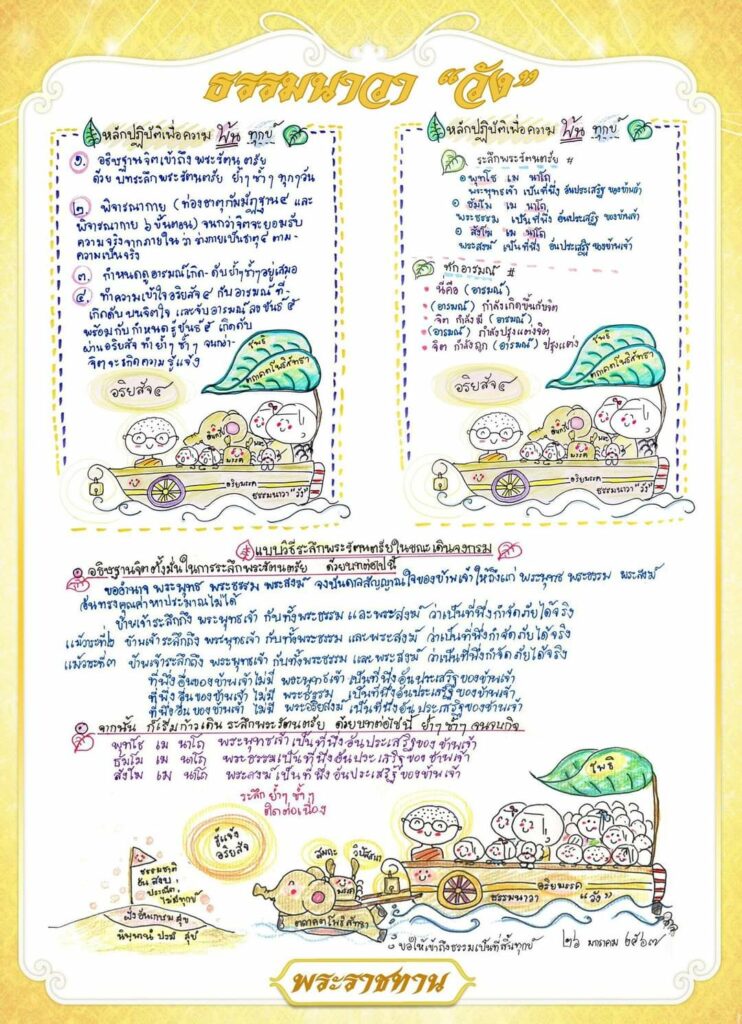 ธรรมนาวา “วัง”
หลักปฏิบัติเพื่อความ พ้น ทุกข์
๑. อธิษฐานจิตเข้าถึง พระรัตนตรัย
ด้วย บทระลึกพระรัตนตรัย ย้ำๆ ซ้ำๆ ทุกๆวัน
๒. พิจารณากาย (ท่องธาตุกัมมัฏฐาน๔ และ
พิจารณากาย ๖ ขั้นตอน) จนกว่าจิตจะยอมรับ
ความจริงจากภายใน ว่า ร่างกายเป็นธาตุ๔ ตาม-
ความเป็นจริง
๓. กำหนดดูอารมณ์เกิด-ดับ ย้ำๆซ้ำๆอยู่เสมอ
๔. ทำความเข้าใจอริยสัจ ๔ กับ อารมณ์ ที่-
เกิดดับ บนจิตใจ และจับ อารมณ์ ลงขันธ์ ๕
พร้อมกับ กำหนด รู้ขันธ์ ๕ เกิดดับ
ผ่านอริยสัจ ทำย้ำๆ ซ้ำๆ จนกว่า-
จิตจะเกิดความ รู้แจ้ง
อริยสัจ๔
โพธิ
ตถาคตโพธิสัทธา
มรรค
อริยมรรค
ธรรมนาวา “วัง”
หลักปฏิบัติเพื่อความ พ้น ทุกข์
ระลึกพระรัตนตรัย #
๑ พุทโธ เม นาโถ
พระพุทธเจ้า เป็นที่พึ่ง อันประเสริฐ ของข้าพเจ้า
๒ ธัมโม เม นาโถ
พระธรรม เป็นที่พึ่ง อันประเสริฐ ของข้าพเจ้า
๓ สังโฆ เม นาโถ
พระสงฆ์ เป็นที่พึ่ง อันประเสริฐ ของข้าพเจ้า
ทักอารมณ์ #
นี่คือ (อารมณ์)
(อารมณ์) กำลังเกิดขึ้นกับจิต
จิต กำลังมี (อารมณ์)
(อารมณ์) กำลังปรุงแต่งจิต
จิต กำลังถูก (อารมณ์) ปรุงแต่ง
อริยสัจ๔
โพธิ
ตถาคตโพธิสัทธา
มรรค
อริยมรรค
ธรรมนาวา “วัง”
แบบวิธีระลึกพระรัตนตรัยในขณะเดินจงกรม
อธิษฐานจิตตั้งมั่นในการระลึกพระรัตนตรัย ด้วยบทต่อไปนี้
ขออำนาจ พระพุทธ พระธรรม พระสงฆ์ จงเป็นดาลสัญญาณใจของข้าพเจ้า ให้ถึงแก่ พระพุทธ พระธรรม พระสงฆ์
อันทรงคุณค่าหาประมาณไม่ได้
ข้าพเจ้าระลึกถึง พระพุทธเจ้า กับทั้งพระธรรม และพระสงฆ์ ว่าเป็นที่พึ่งกำจัดภัยได้จริง
แม้วาระที่๒ ข้าพเจ้าระลึกถึง พระพุทธเจ้า กับทั้งพระธรรม และพระสงฆ์ ว่าเป็นที่พึ่งกำจัดภัยได้จริง
แม้วาระที่๓ ข้าพเจ้าระลึกถึง พระพุทธเจ้า กับทั้งพระธรรม และพระสงฆ์ ว่าเป็นที่พึ่งกำจัดภัยได้จริง
ที่พึ่งอื่นของข้าพเจ้าไม่มี พระพุทธเจ้า เป็นที่พึ่งอันประเสริฐของข้าพเจ้า
ที่พึ่งอื่นของข้าพเจ้า ไม่มี พระธรรม เป็นที่พึ่งอันประเสริฐของข้าพเจ้า
ที่พึ่งอื่นของข้าพเจ้า ไม่มี พระอริยสงฆ์ เป็นที่พึ่งอันประเสริฐของข้าพเจ้า
จากนั้น ก็เริ่มก้าวเดิน ระลึกพระรัตนตรัย ด้วยบทต่อไปนี้ ย้ำๆ ซ้ำๆ จนจบกิจ
พุทโธ เม นาโถ พระพุทธเจ้าเป็นที่พึ่งอันประเสริฐของข้าพเจ้า
ธัมโม เม นาโถ พระธรรมเป็นที่พึ่งอันประเสริฐของข้าพเจ้า
สังโฆ เม นาโถ พระสงฆ์เป็นที่พึ่งอันประเสริฐของข้าพเจ้า
ระลึก ย้ำๆ ซ้ำๆ
ติดต่อเนื่อง
โพธิ
รู้แจ้ง
อริยสัจ
สมถะ วิปัสสนา
มรรค
ธรรมชาติ
อัน สงบ
ประณีต
ไม่มีทุกข์
นิพพานํ ปรมํ สุขํ
ตถาคตโพธิสัทธา
อริยมรรค
ธรรมนาวา “วัง”
ขอให้เข้าถึงธรรมเป็นที่สิ้นทุกข์
๒๖ มกราคม ๒๕๖๗
พระราชทาน